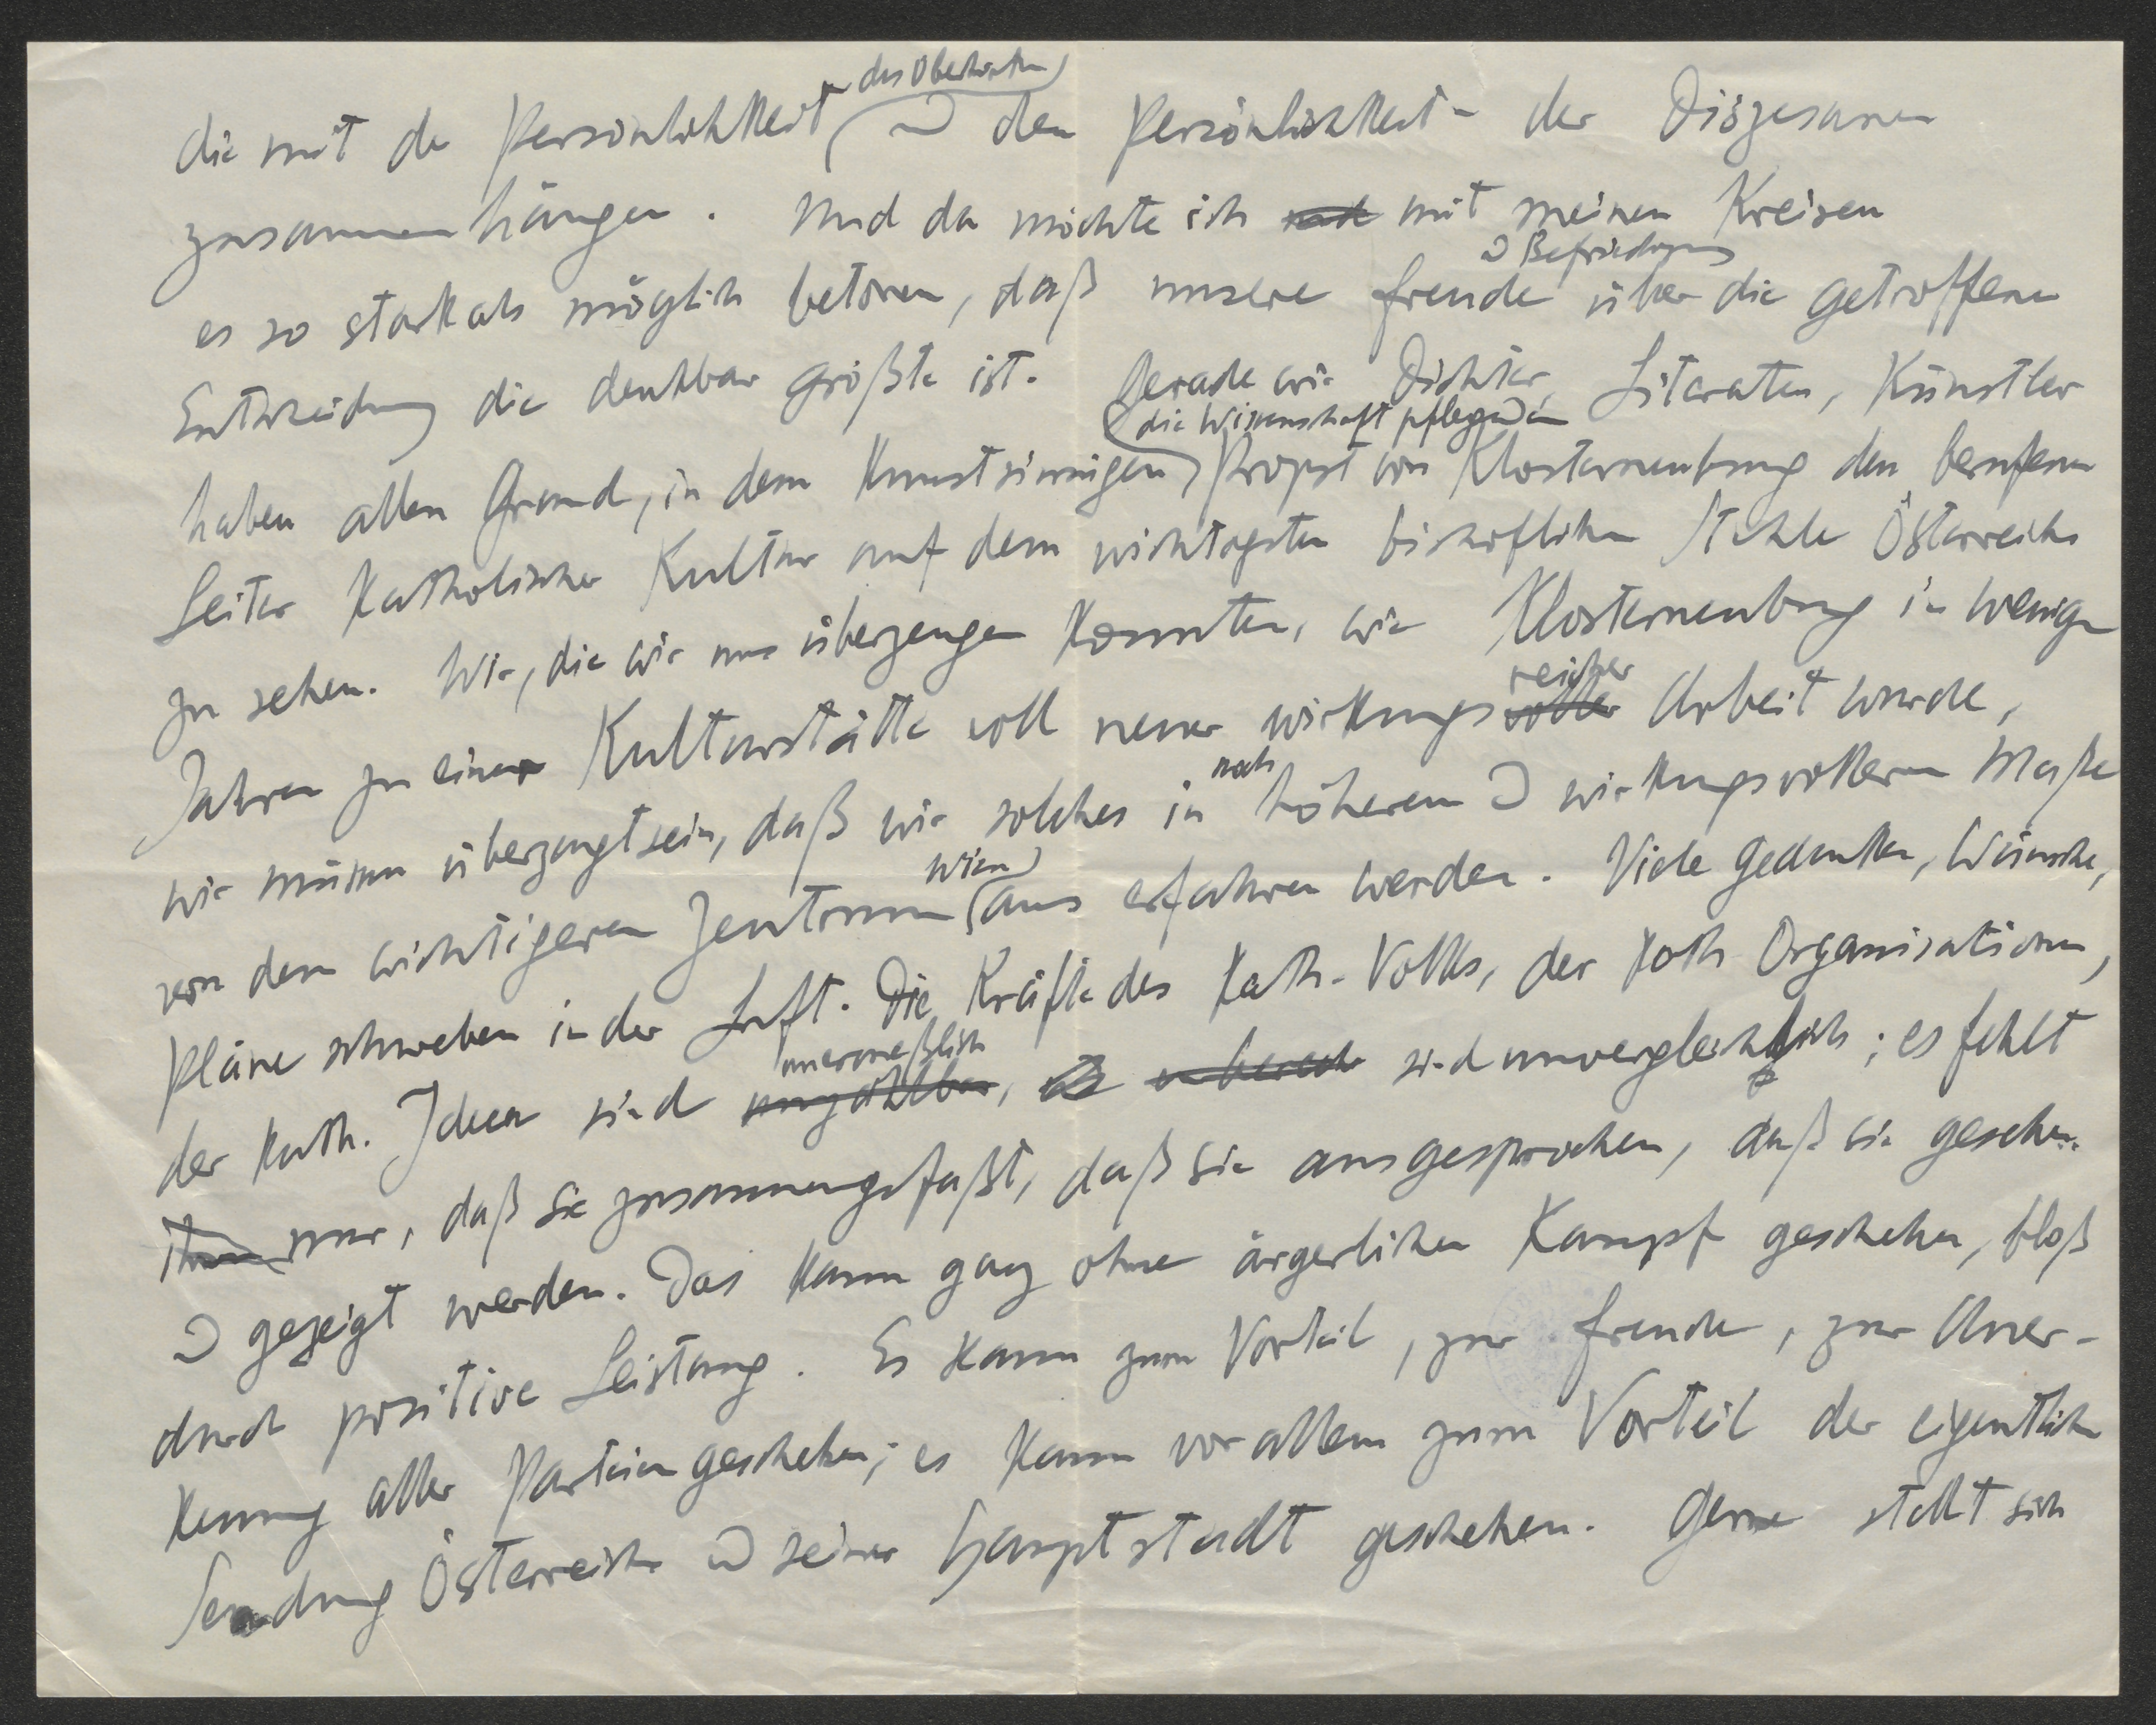 die mit der Persönlichkeit des Oberhirten u den Persönlichkeiten der Diözesanen
zusammenhängen. Und da möchte ich mit meinen Kreisen
es so stark als möglich betonen, daß unsere Freude u Befriedigung über die getroffene
Entscheidung die denkbar größte ist. Gerade wir Dichter, Literaten, Künstler
haben allen Grund, in dem kunstsinnigen, die Wissenschaft pflegenden Propst von Klosterneuburg den berufenen
Leiter katholischer Kultur auf dem wichtigsten bischöflichen Stuhle Österreichs
zu sehen. Wir, die wir uns überzeugen konnten, wie Klosterneuburg in wenigen
Jahren zu einer Kulturstätte voll neuer wirkungsreicher Arbeit wurde,
wir müssen überzeugt sein, daß wir solches in noch höherem u wirkungsvollerem Maße
von dem wichtigeren Zentrum Wien aus erfahren werden. Viele Gedanken, Wünsche,
Pläne schweben in der Luft. Die Kräfte des kath. Volks, der kath Organisationen,
der kath. Ideen sind unermeßlich, sind unvergleichlich; es fehlt
nur, daß sie zusammengefaßt, daß sie ausgesprochen, daß sie gesehen
u gezeigt werden. Das kann ganz ohne ärgerlichen Kampf geschehen, bloß
durch positive Leistung. Es kann zum Vorteil, zur Freude, zur Aner-
kennung aller Parteien geschehen; es kann vor allem zum Vorteil der eigentlichen
Sendung Österreichs u seiner Hauptstadt geschehen. Gerne stellt sich